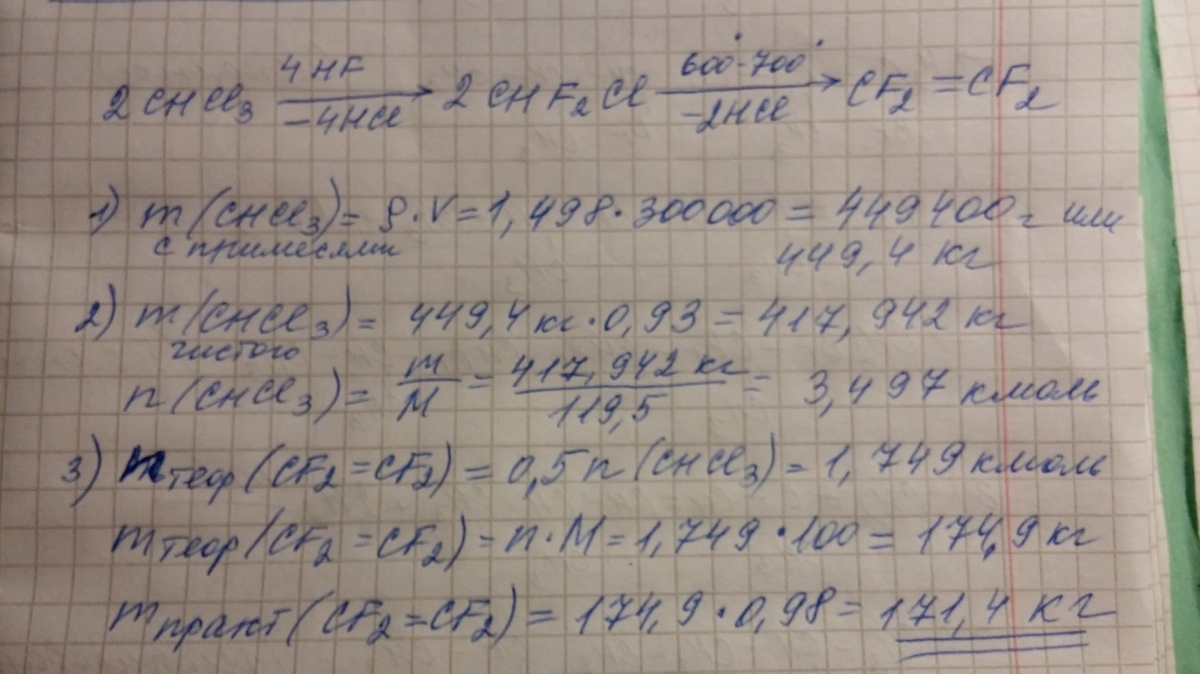 2CHCl₃ 4HF/−4HCl → 2CHF₂Cl 600°-700°/−2HCl → CF₂=CF₂
1) m(CHCl₃) = ρ·V = 1,498·300000 = 449400 г или
с примесями 449,4 кг
2) m(CHCl₃) = 449,4 кг·0,93 = 417,942 кг
чистого
n(CHCl₃) = m/M = 417,942 кг/119,5 = 3,497 кмоль
3) nтеор(CF₂=CF₂) = 0,5n(CHCl₃) = 1,749 кмоль
mтеор(CF₂=CF₂) = n·M = 1,749·100 = 174,9 кг
mпракт(CF₂=CF₂) = 174,9·0,98 = 171,4 кг